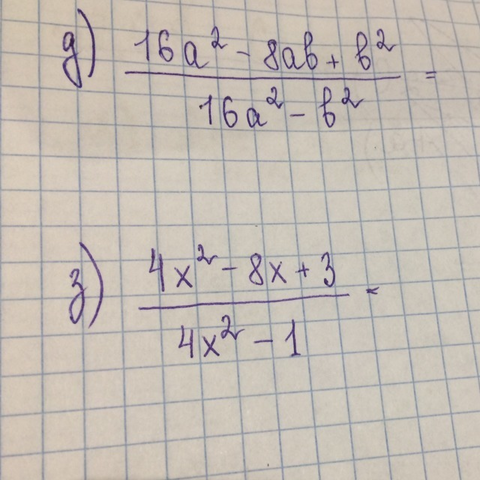 д) (16a² - 8ab + b²)/(16a² - b²) =
з) (4x² - 8x + 3)/(4x² - 1) =